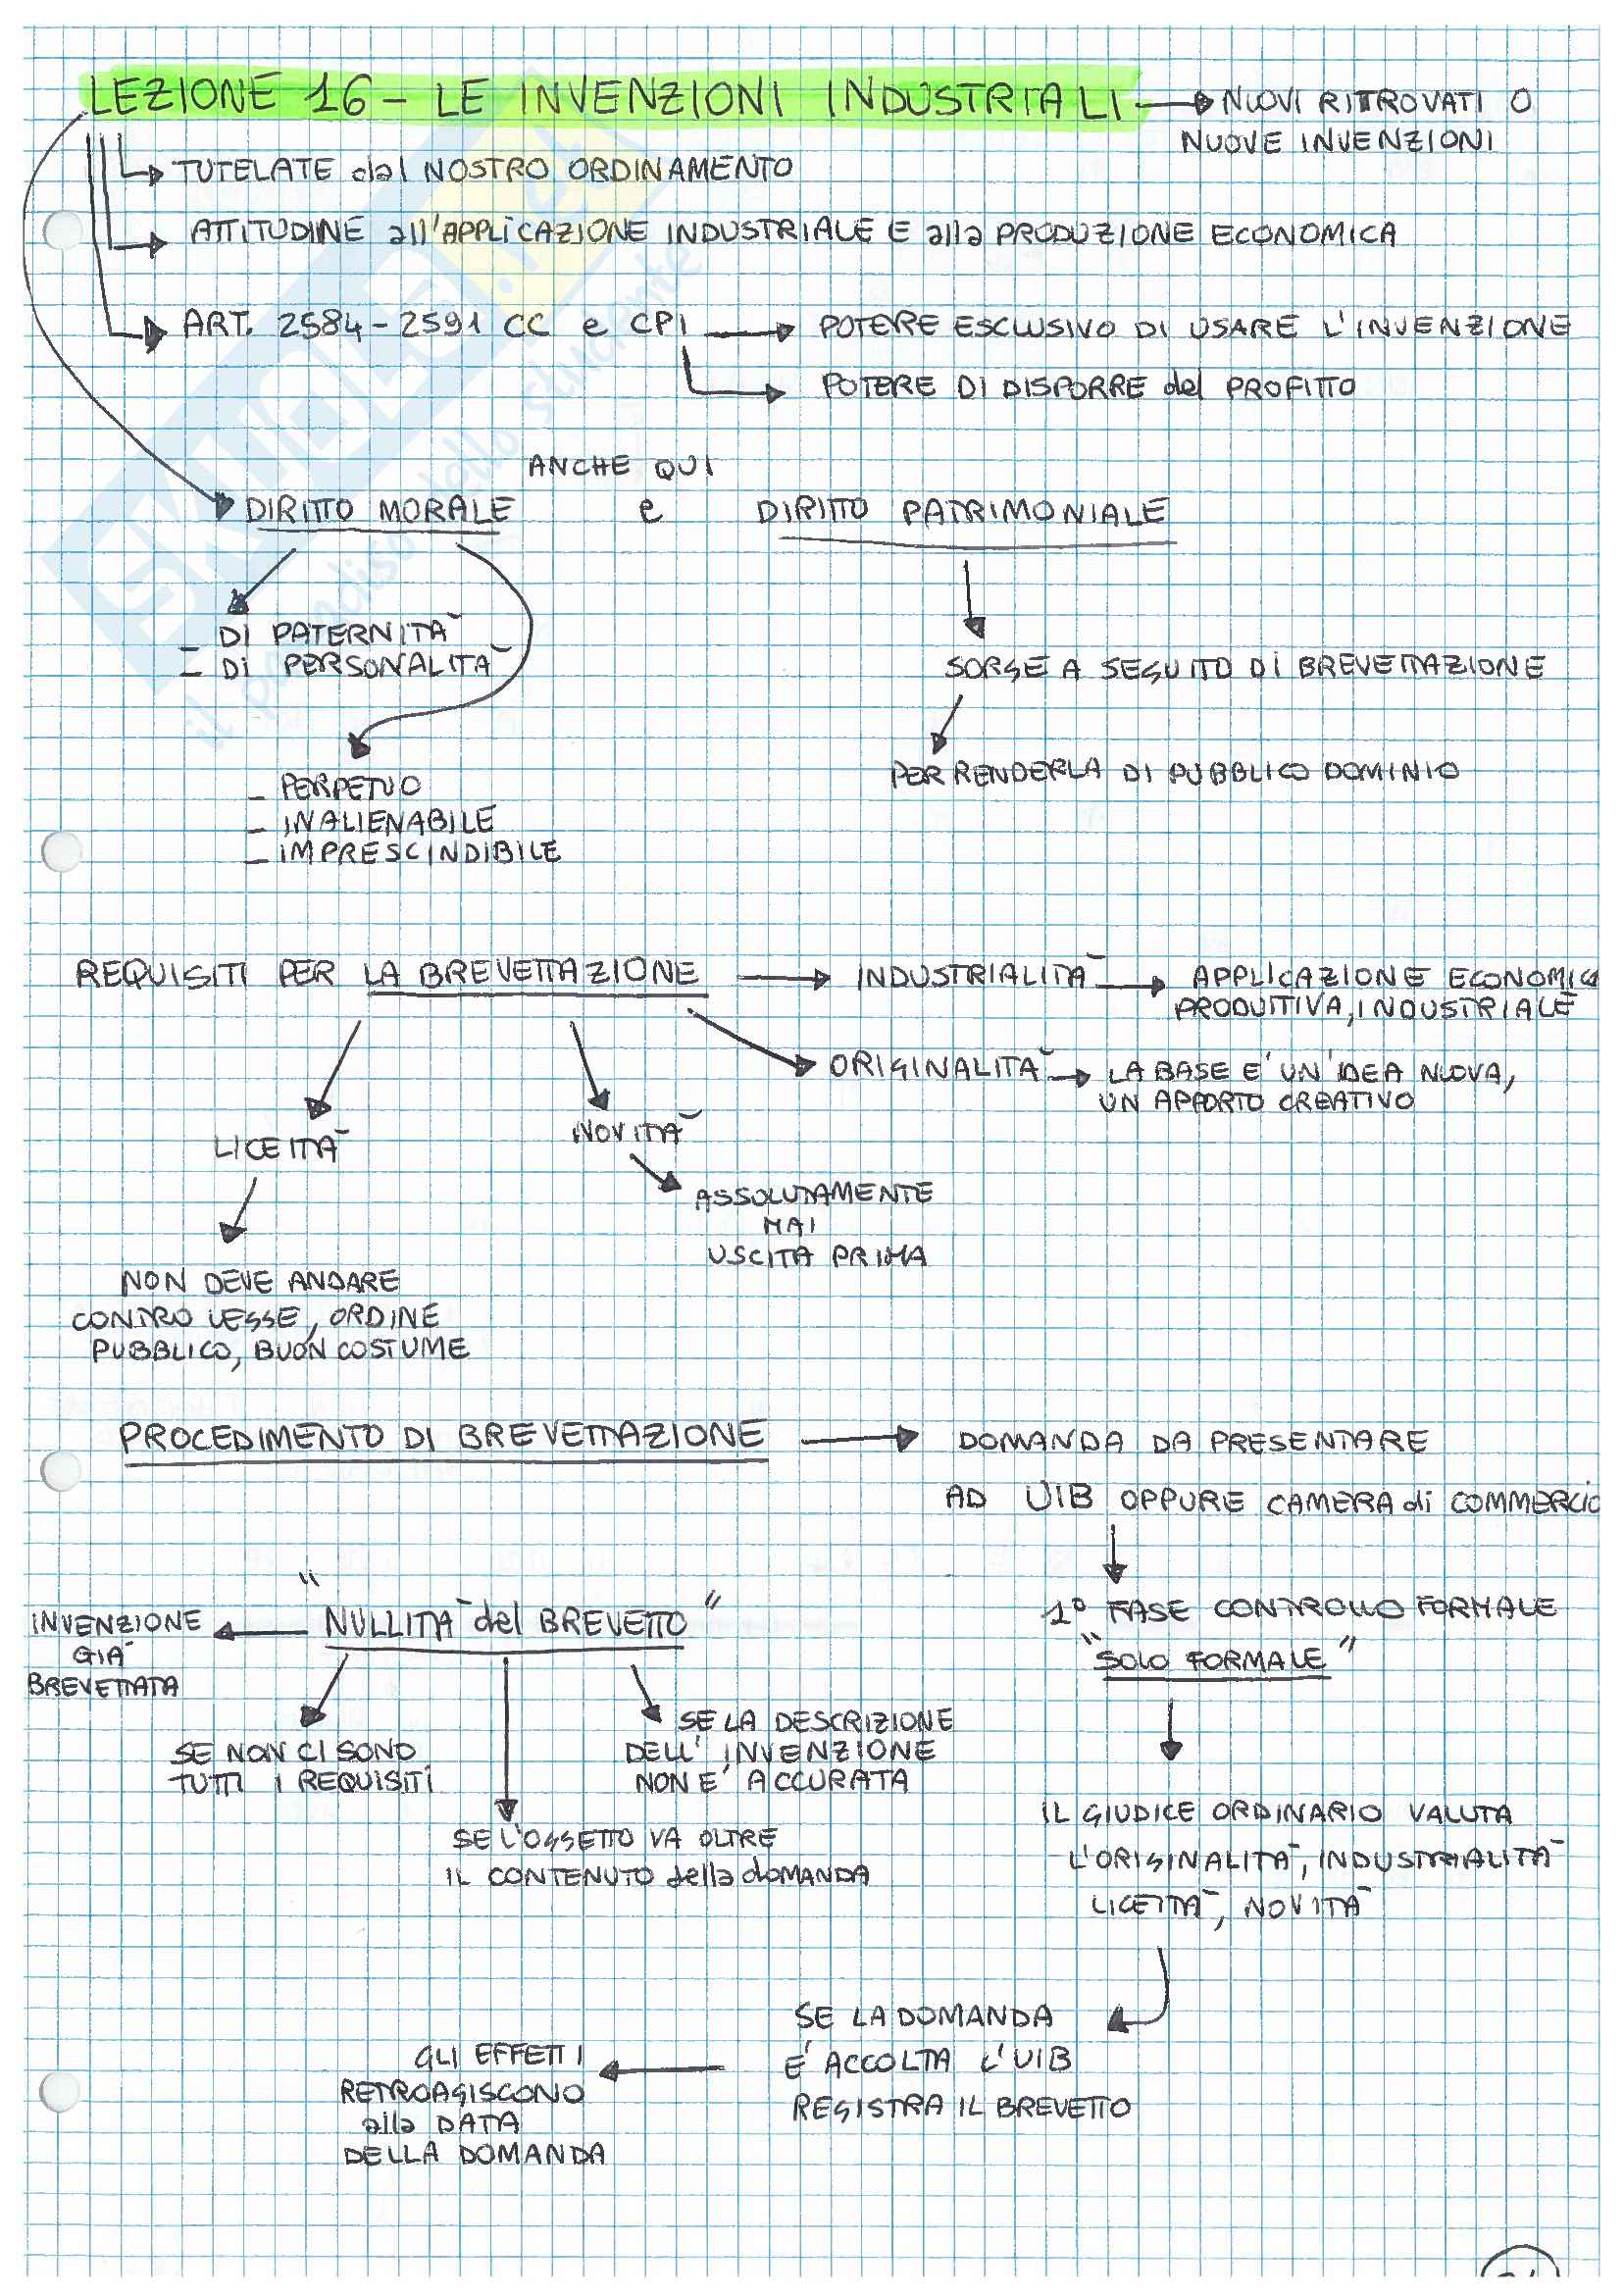 LEZIONE 16 - LE INVENZIONI INDUSTRIALI → NUOVI RITROVATI O
NUOVE INVENZIONI
TUTELATE dal NOSTRO ORDINAMENTO
ATTITUDINE all'APPLICAZIONE INDUSTRIALE E alla PRODUZIONE ECONOMICA
ART. 2584 - 2591 CC e CPI → POTERE ESCLUSIVO DI USARE L'INVENZIONE
POTERE DI DISPORRE del PROFITTO
ANCHE QUI
DIRITTO MORALE e DIRITTO PATRIMONIALE
- DI PATERNITÀ
- DI PERSONALITÀ
SORGE A SEGUITO DI BREVETTAZIONE
PER RENDERLA DI PUBBLICO DOMINIO
- PERPETUO
- INALIENABILE
- IMPRESCINDIBILE
REQUISITI PER LA BREVETTAZIONE → INDUSTRIALITÀ → APPLICAZIONE ECONOMICA
PRODUTTIVA, INDUSTRIALE
ORIGINALITÀ → LA BASE E' UN'IDEA NUOVA,
UN APPORTO CREATIVO
LICEITÀ
NOVITÀ
ASSOLUTAMENTE
MAI
USCITA PRIMA
NON DEVE ANDARE
CONTRO LEGGE, ORDINE
PUBBLICO, BUON COSTUME
PROCEDIMENTO DI BREVETTAZIONE → DOMANDA DA PRESENTARE
AD UIB OPPURE CAMERA di COMMERCIO
1° FASE CONTROLLO FORMALE
"SOLO FORMALE"
"NULLITÀ del BREVETTO"
INVENZIONE
GIÀ
BREVETTATA
SE NON CI SONO
TUTTI I REQUISITI
SE LA DESCRIZIONE
DELL'INVENZIONE
NON E' ACCURATA
SE L'OGGETTO VA OLTRE
IL CONTENUTO della domANDA
IL GIUDICE ORDINARIO VALUTA
L'ORIGINALITÀ, INDUSTRIALITÀ
LICETTÀ, NOVITÀ
SE LA DOMANDA
E' ACCOLTA L'UIB
REGISTRA IL BREVETTO
GLI EFFETTI
RETROAGISCONO
alla DATA
DELLA DOMANDA
SKUOLA.net
il paradiso dello studente